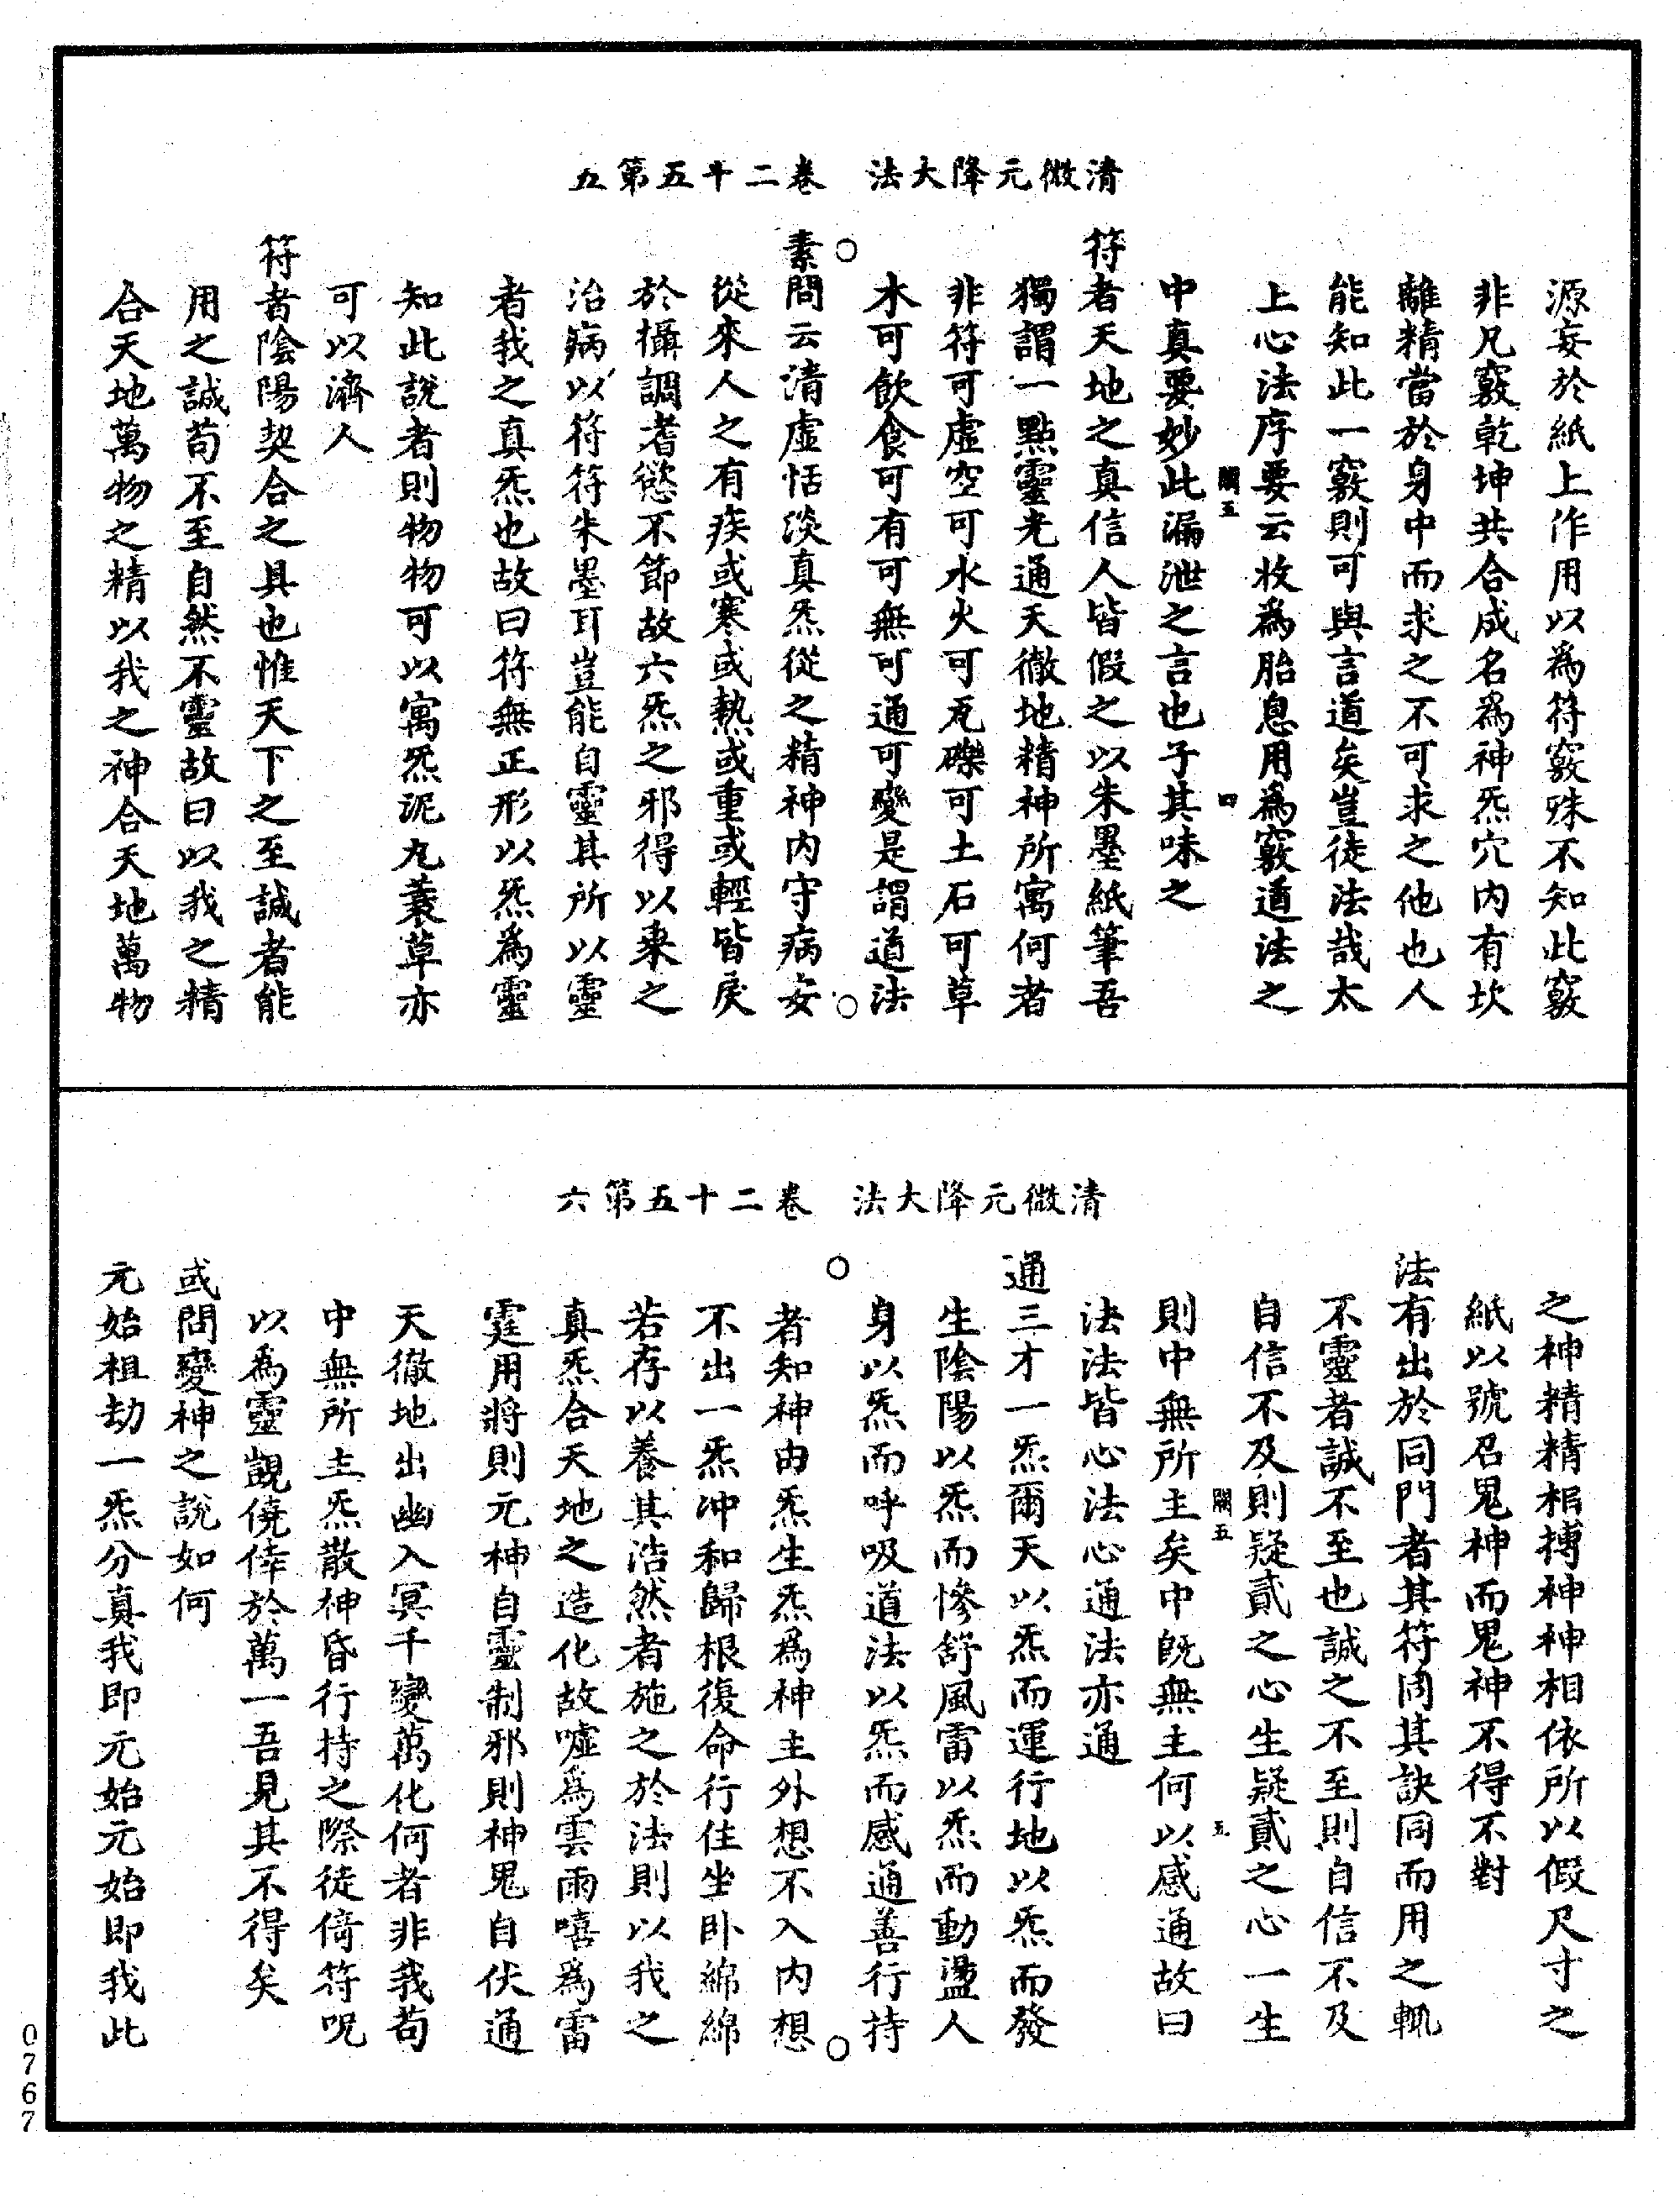 清微元降大法　卷二十五第五
源妄於紙上作用以為符竅殊不知此竅
非凡竅乾坤共合成名為神炁穴內有坎
離精當於身中而求之不可求之他也人
能知此一竅則可與言道矣豈徒法哉太
上心法序要云收為胎息用為竅道法之
關五　四
中真要妙此漏泄之言也子其味之
符者天地之真信人皆假之以朱墨紙筆吾
獨謂一點靈光通天徹地精神所寓何者
非符可虛空可水火可瓦礫可土石可草
木可飲食可有可無可通可變是謂道法
素問云清虛恬淡真炁從之精神內守病安
從來人之有疾或寒或熱或重或輕皆戾
於攝調耆慾不節故六炁之邪得以乘之
治病以符符朱墨耳豈能自靈其所以靈
者我之真炁也故曰符無正形以炁為靈
知此說者則物物可以寓炁泥丸蓑草亦
可以濟人
符者陰陽契合之具也惟天下之至誠者能
用之誠苟不至自然不靈故曰以我之精
合天地萬物之精以我之神合天地萬物
清微元降大法　卷二十五第六
之神精精相搏神神相依所以假尺寸之
紙以號召鬼神而鬼神不得不對
法有出於同門者其符同其訣同而用之輒
不靈者誠不至也誠之不至則自信不及
自信不及則疑貳之心生疑貳之心一生
關五　五
則中無所主矣中既無主何以感通故曰
法法皆心法心通法亦通
通三才一炁爾天以炁而運行地以炁而發
生陰陽以炁而慘舒風雷以炁而動盪人
身以炁而呼吸道法以炁而感通善行持
者知神由炁生炁為神主外想不入內想
不出一炁冲和歸根復命行住坐卧綿綿
若存以養其浩然者施之於法則以我之
真炁合天地之造化故噓為雲雨嘻為雷
霆用將則元神自靈制邪則神鬼自伏通
天徹地出幽入冥千變萬化何者非我苟
中無所主炁散神昏行持之際徒倚符呪
以為靈覬僥倖於萬一吾見其不得矣
或問變神之說如何
元始祖劫一炁分真我即元始元始即我此
0767